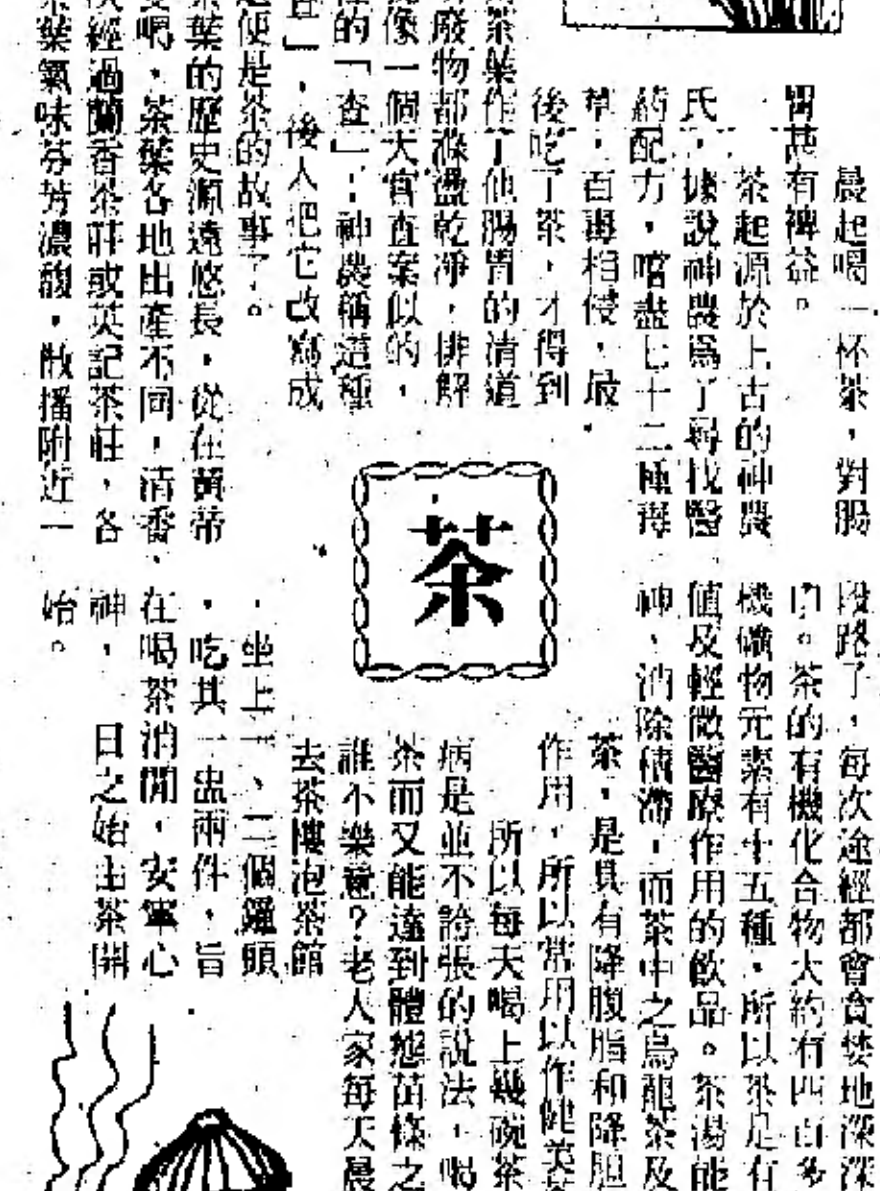 茶
晨起喝一杯茶,對腸
胃甚有裨益。
茶起源於上古的神農
氏,據說神農爲了尋找醫
藥配方,嚐盡七十二種毒
草,百毒相侵,最
後吃了茶,才得到
茶葉作了他腸胃的清道
廢物都滌盪乾淨,排解
像一個大官查案似的,
的「查」;神農稱這種
查」,後人把它改寫成
便是茶的故事了。
茶葉的歷史源遠悠長,從在黃帝
喝,茶葉各地出產不同,清香,
次經過蘭香茶莊或英記茶莊,各
茶葉氣味芬芳濃馥,散播附近一
段路了,每次途經都會貪婪地深深
。茶的有機化合物大約有四百多
機礦物元素有十五種,所以茶是有
值及輕微醫療作用的飲品。茶湯能
神、消除積滯,而茶中之烏龍茶及
茶,是具有降腹脂和降胆
作用,所以常用以作健美
所以每天喝上幾碗茶
病是並不誇張的說法,喝
茶而又能達到體態苗條之
誰不樂意?老人家每天晨
去茶樓泡茶館
,坐上一、二個鐘頭
,吃其一盅兩件,旨
在喝茶消閒,安寧心
神,日之始由茶開
始。